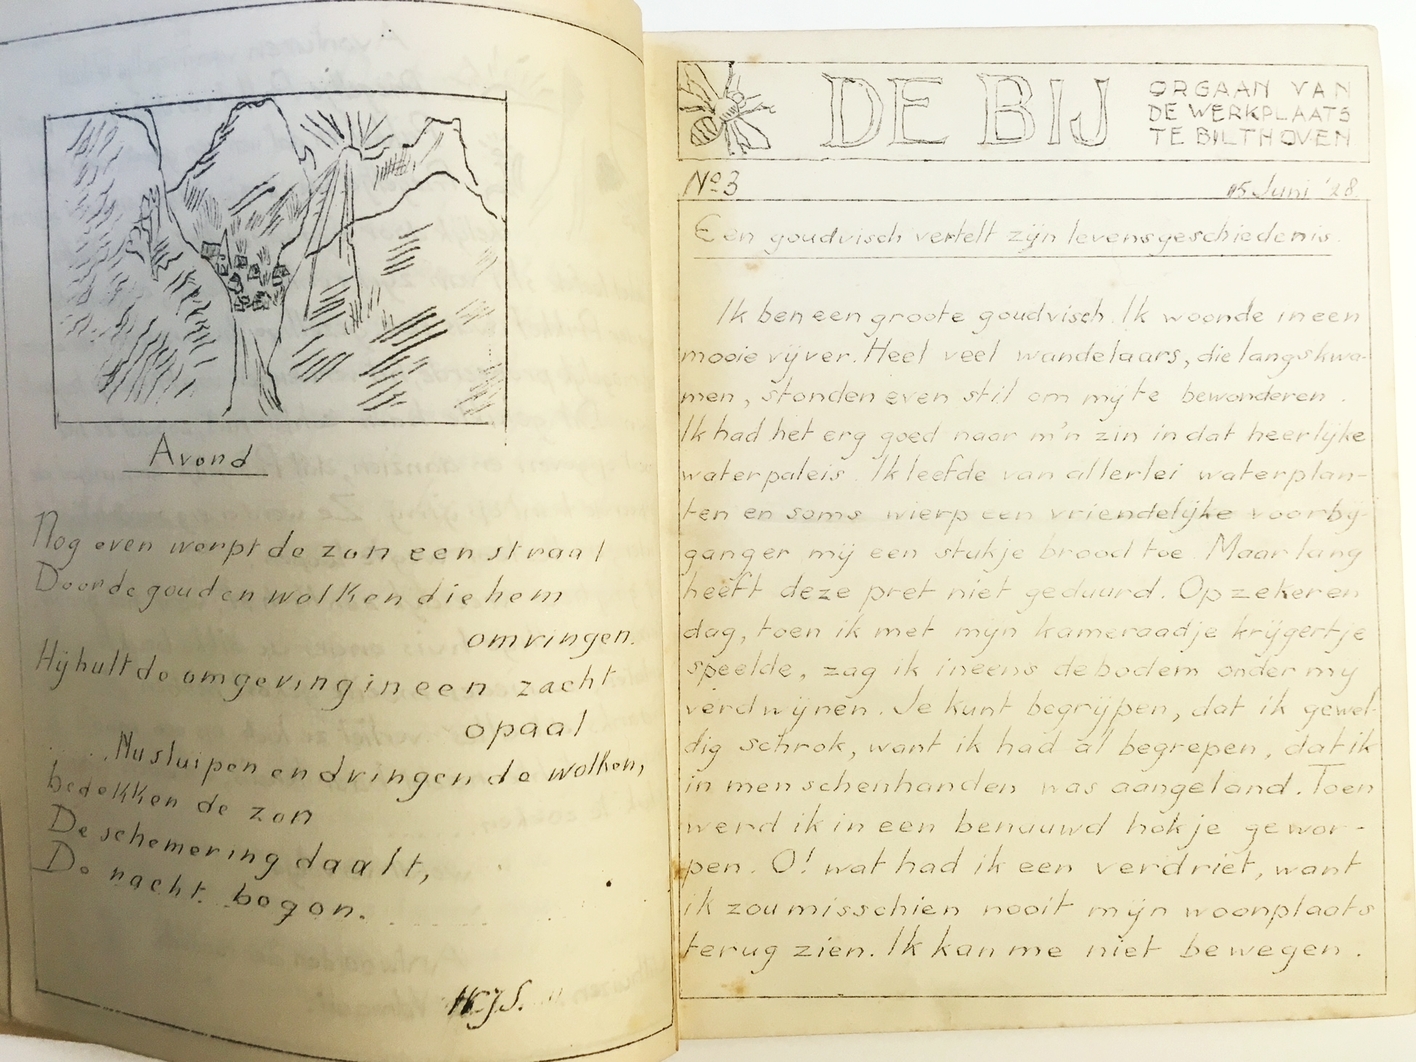 Avond
Nog even werpt de zon een straal
Door de gouden wolken die hem
omringen.
Hij hult de omgeving in een zacht
opaal
.... Nu sluipen en dringen de wolken,
bedekken de zon
De schemering daalt,
De nacht begon.
HCJS.
DE BIJ
ORGAAN VAN
DE WERKPLAATS
TE BILTHOVEN
No 3
15 Juni '28
Een goudvisch vertelt zijn levensgeschiedenis.
Ik ben een groote goudvisch. Ik woonde in een
mooie vijver. Heel veel wandelaars, die langs kwa-
men, stonden even stil om mij te bewonderen.
Ik had het erg goed naar m'n zin in dat heerlijke
waterpaleis. Ik leefde van allerlei waterplan-
ten en soms wierp een vriendelijke voorbij-
ganger mij een stukje brood toe. Maar lang
heeft deze pret niet geduurd. Op zekeren
dag, toen ik met mijn kameraadje krijgertje
speelde, zag ik ineens de bodem onder mij
verdwijnen. Je kunt begrijpen, dat ik gewel-
dig schrok, want ik had al begrepen, dat ik
in menschenhanden was aangeland. Toen
werd ik in een benauwd hokje gewor-
pen. O! wat had ik een verdriet, want
ik zou misschien nooit mijn woonplaats
terug zien. Ik kan me niet bewegen.